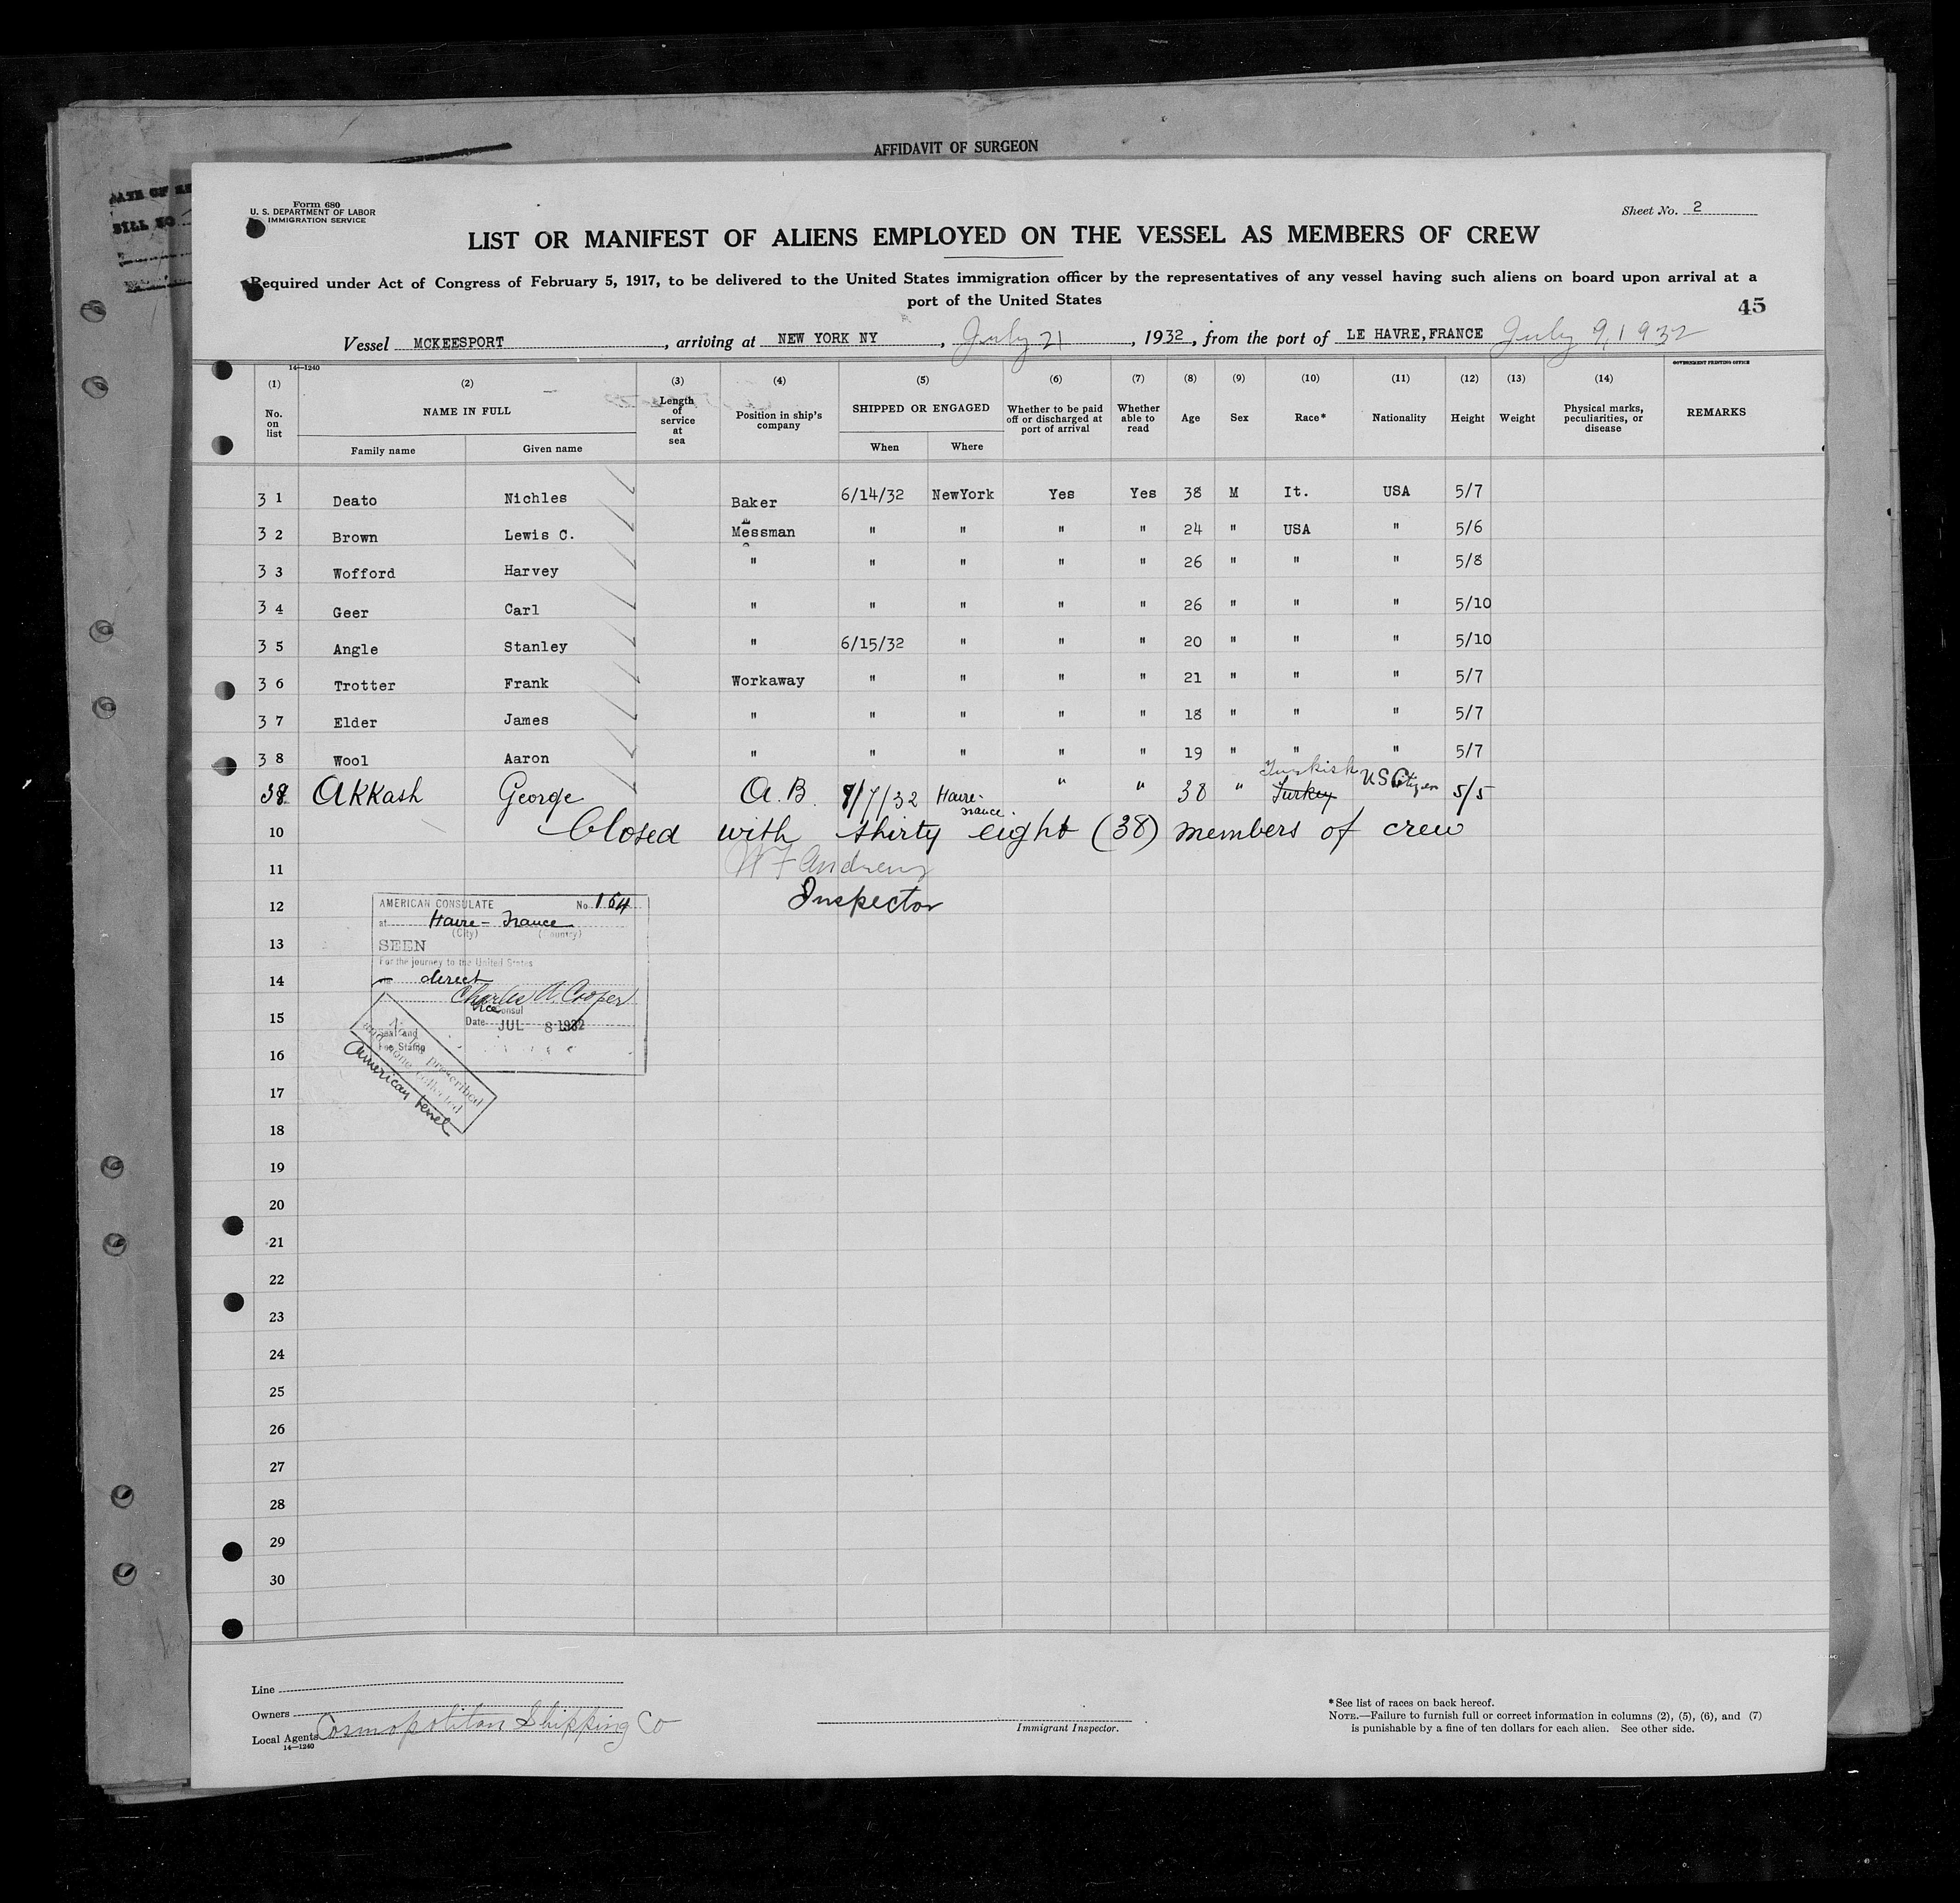 AFFIDAVIT OF SURGEON
Form 680
U. S. DEPARTMENT OF LABOR
IMMIGRATION SERVICE
Sheet No. 2
LIST OR MANIFEST OF ALIENS EMPLOYED ON THE VESSEL AS MEMBERS OF CREW
Required under Act of Congress of February 5, 1917, to be delivered to the United States immigration officer by the representatives of any vessel having such aliens on board upon arrival at a
port of the United States
45
Vessel MCKEESPORT, arriving at NEW YORK NY, July 21, 1932, from the port of LE HAVRE, FRANCE July 9, 1932
14—1240
GOVERNMENT PRINTING OFFICE
(1) (2) (3) (4) (5) (6) (7) (8) (9) (10) (11) (12) (13) (14)
No. on list NAME IN FULL Length of service at sea Position in ship's company SHIPPED OR ENGAGED Whether to be paid off or discharged at port of arrival Whether able to read Age Sex Race* Nationality Height Weight Physical marks, peculiarities, or disease REMARKS
Family name Given name When Where
31 Deato Nichles Baker 6/14/32 NewYork Yes Yes 38 M It. USA 5/7
32 Brown Lewis C. Messman " " " " 24 " USA " 5/6
33 Wofford Harvey " " " " " 26 " " " 5/8
34 Geer Carl " " " " " 26 " " " 5/10
35 Angle Stanley " 6/15/32 " " " 20 " " " 5/10
36 Trotter Frank Workaway " " " " 21 " " " 5/7
37 Elder James " " " " " 18 " " " 5/7
38 Wool Aaron " " " " " 19 " " " 5/7
38 Akkash George A.B. 7/7/32 Havre-France. " " 38 " Turkey Turkish US Citizen 5/5
10 Closed with thirty eight (38) members of crew
11 W F Andrews
12 Inspector
AMERICAN CONSULATE No. 164
at Havre - France
(City) (Country)
13
SEEN
For the journey to the United States
14
via direct
Charles A. Cooper
Vice Consul
15
Date JUL 8 1932
Seal and
Fee Stamp
16
No fee prescribed
and none collected
American Vessel
17
18
19
20
21
22
23
24
25
26
27
28
29
30
Line
Owners
Local Agents Cosmopolitan Shipping Co
14—1240
Immigrant Inspector.
*See list of races on back hereof.
NOTE.—Failure to furnish full or correct information in columns (2), (5), (6), and (7)
is punishable by a fine of ten dollars for each alien. See other side.